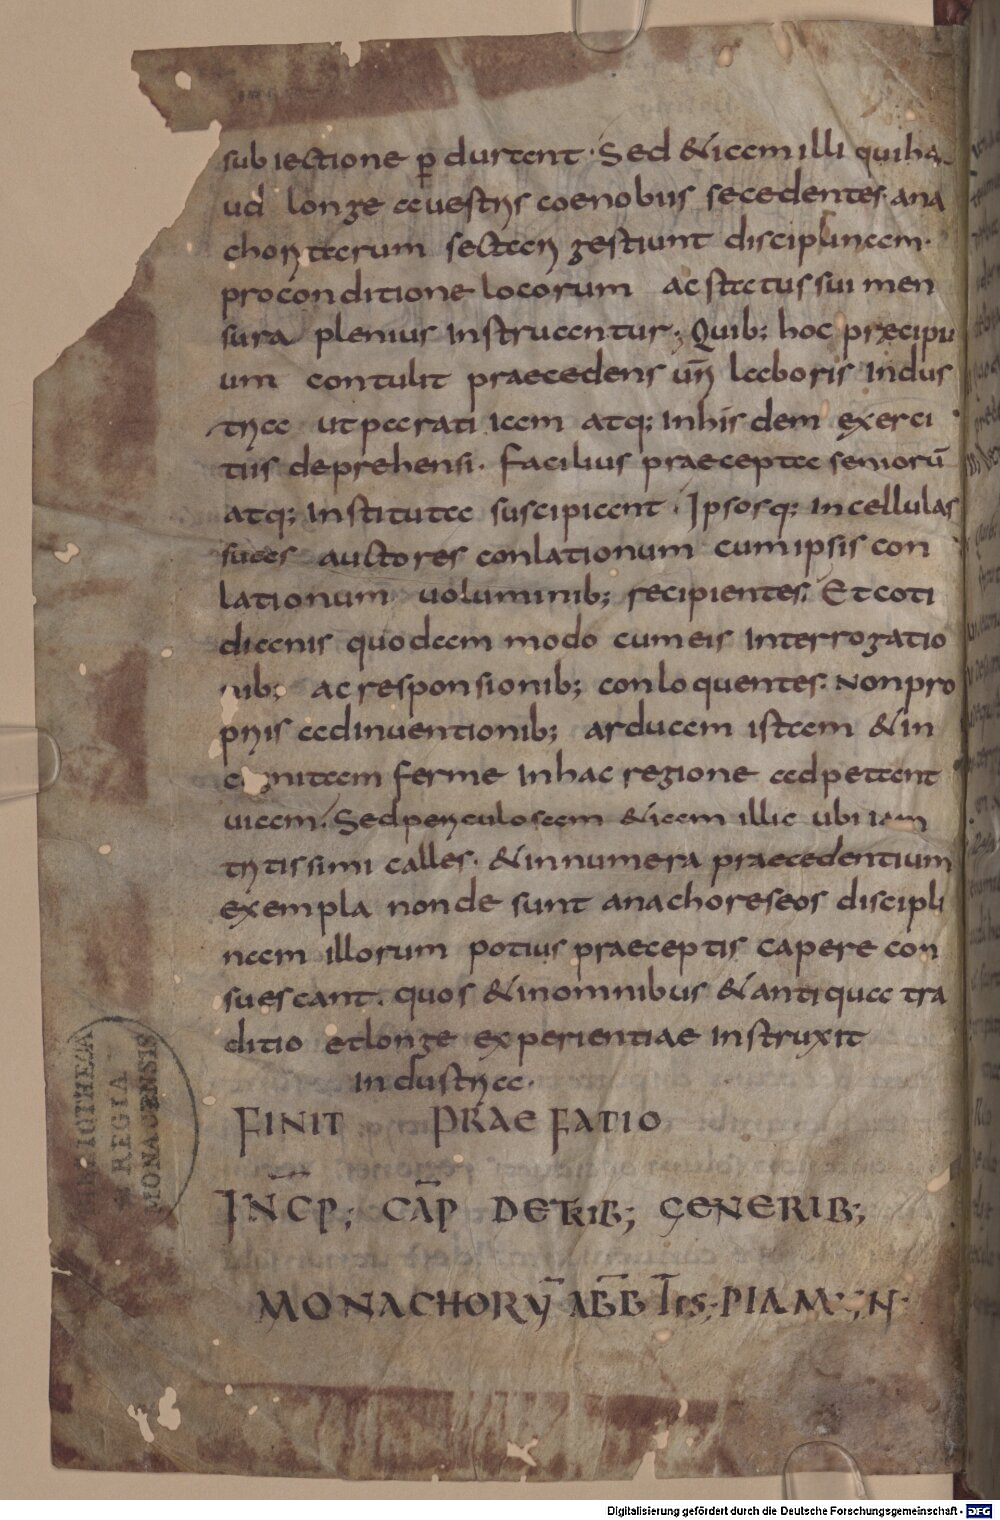 subiectione p̲ durent · Sed & iam illi qui ha
ud longe a uestris coenobiis secedentes · ana
choritarum sectari gestiunt disciplinam ·
pro conditione locorum ac status sui men
sura plenius instruantur ; Quib; hoc praecipu
um contulit praecedens ūri laboris indus
tria ut parati iam atq; inhisdem exerci
tiis deprehensi · facilius praecepta seniorū
atq; instituta suscipiant · Ipsosq; in cellulas
suas auctores conlationum cum ipsis con
lationum uoluminib; recipientes; Et coti
dianis quodam modo cum eis interrogatio
nib; ac responsionib; conloquentes · Non pro
priis adinuentionib; arduam istam & in
cognitam ferme in hac regione ad petant
uiam · Sed periculosam & iam illic ubi iam
tritissimi calles · & innumera praecedentium
exempla non desunt anachoreseos discipli
nam illorum potius praeceptis capere con
suescant · quos & in omnibus & antiqua tra
ditio et longe experientiae instruxit
industria ·
FINIT PRAEFATIO
INCP̄; CAP̄ DE TRIB; GENERIB;
MONACHORŪ ABB̄TIS; PIAMUN ·
BIBLIOTHECA
REGIA
MONACENSIS
Digitalisierung gefördert durch die Deutsche Forschungsgemeinschaft - DFG